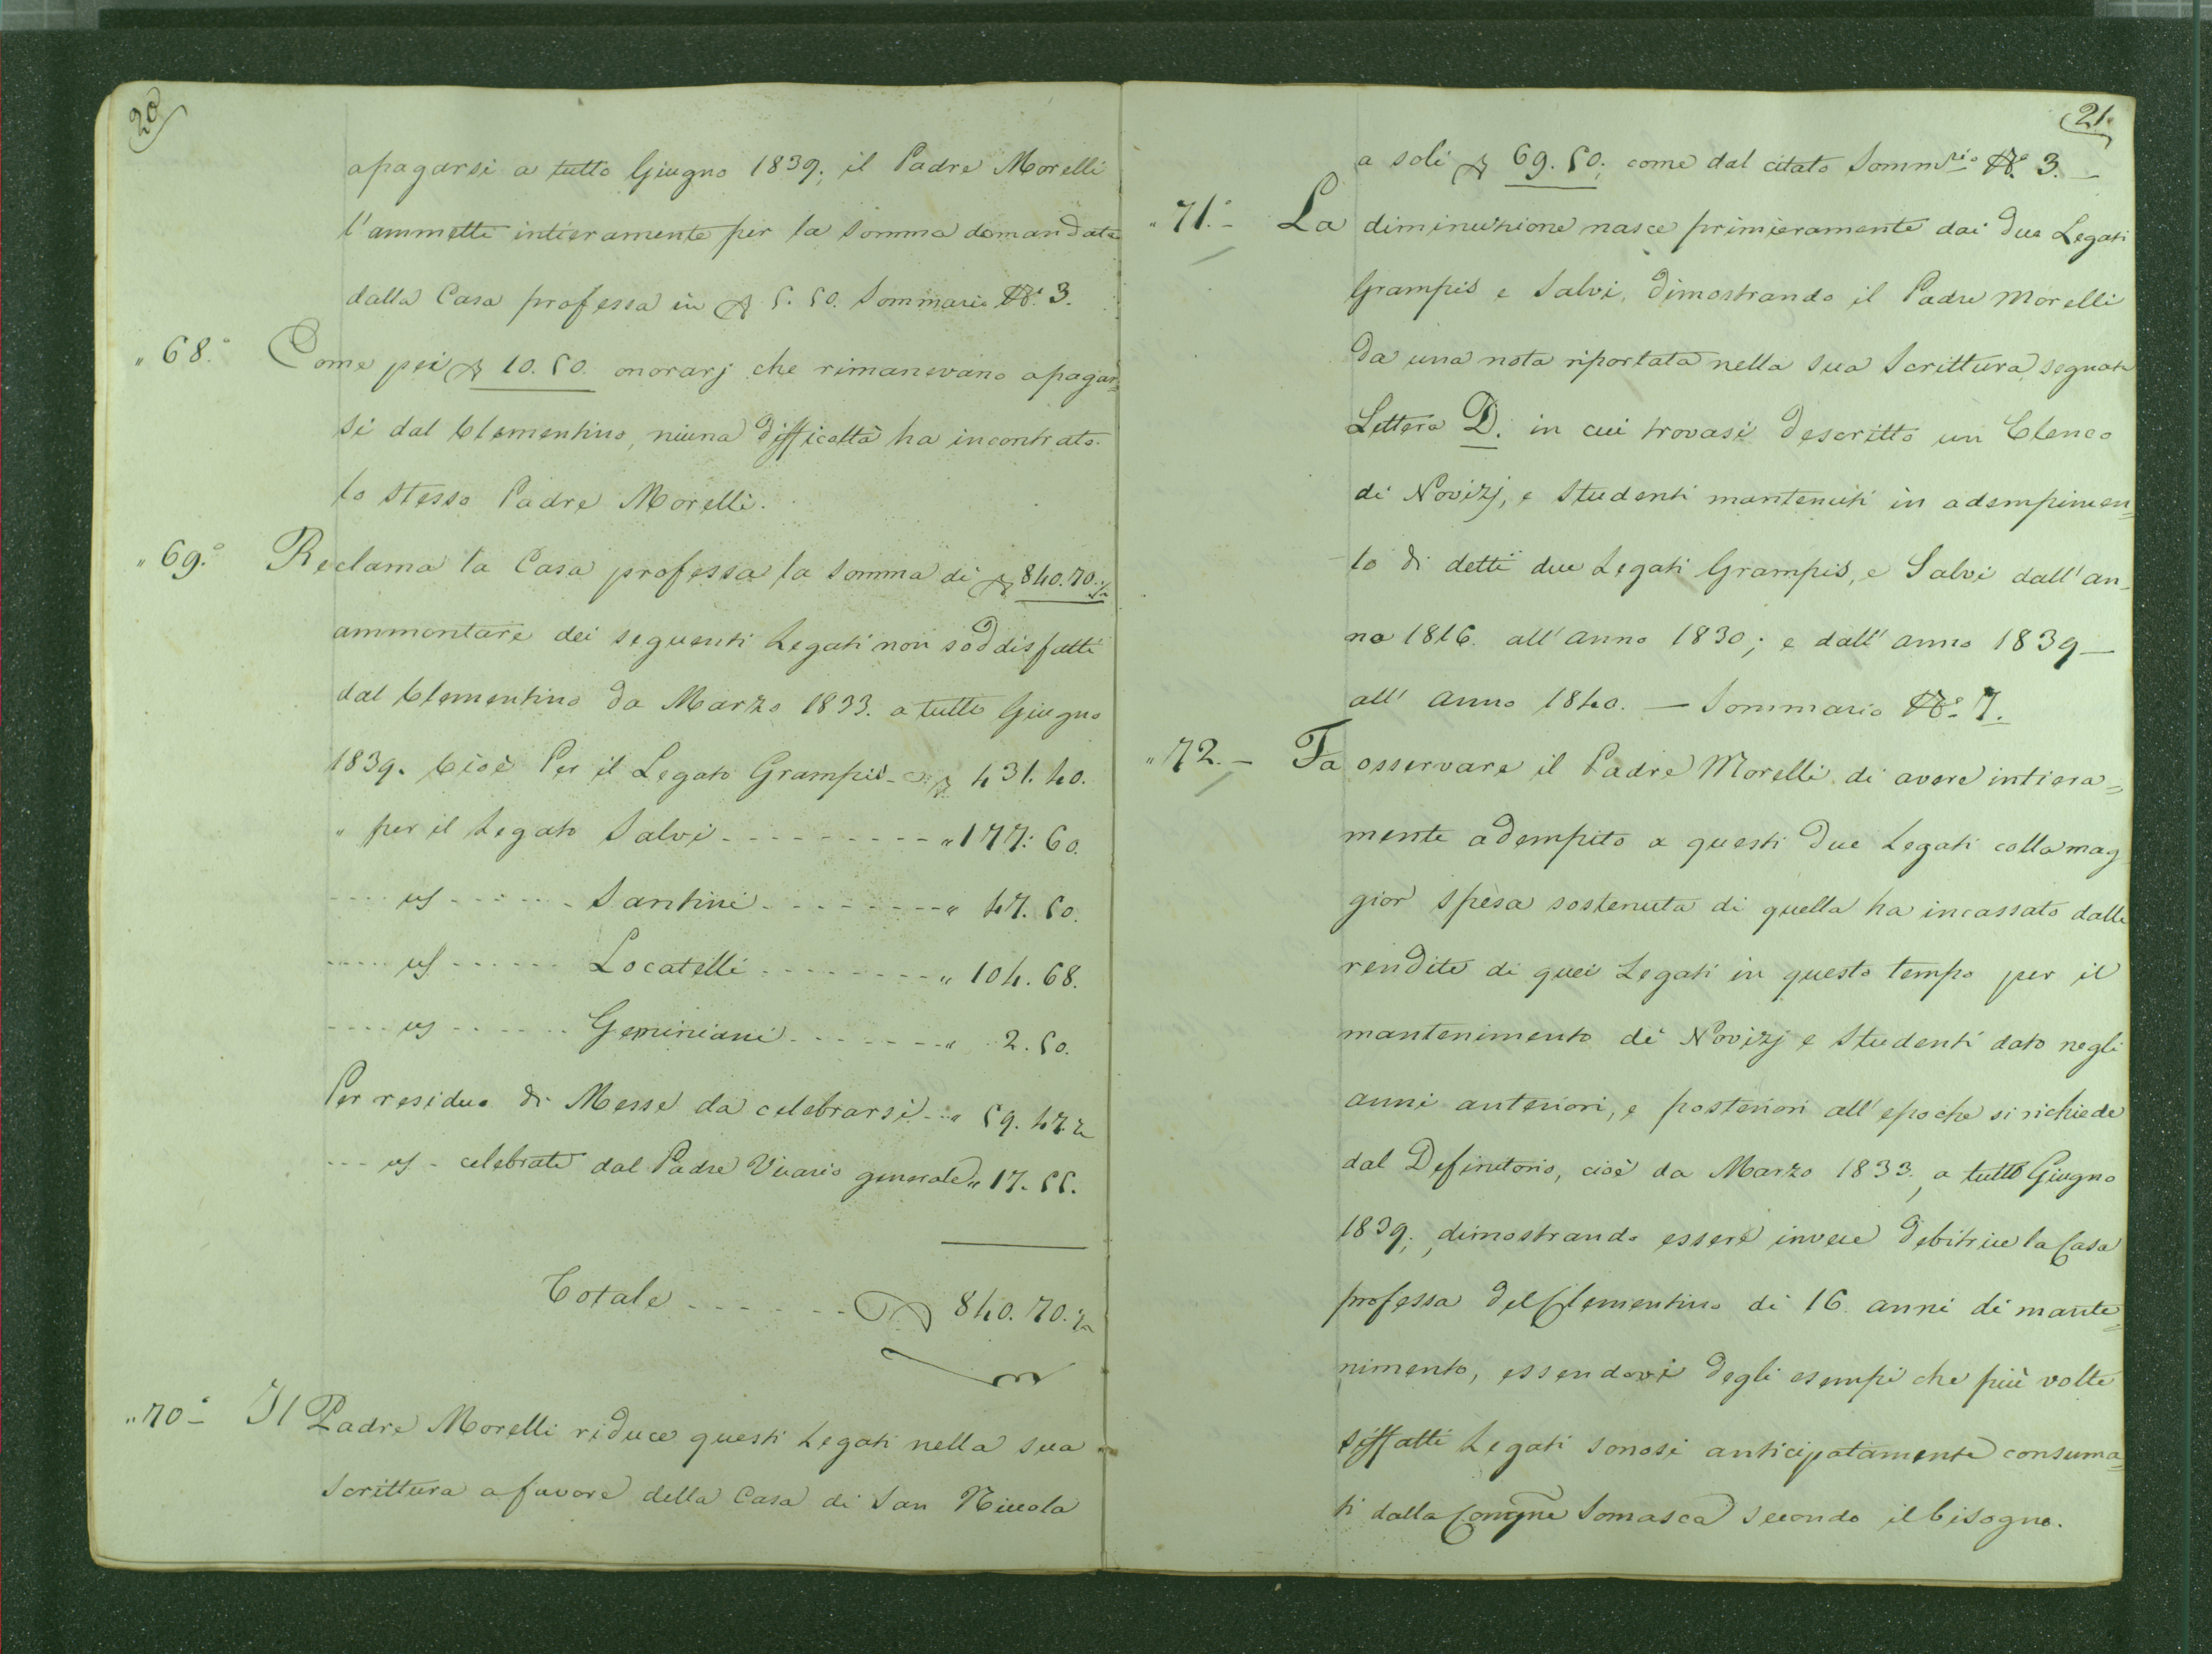 20
apagarsi a tutto Giugno 1839; il Padre Morelli
l'ammette intieramente per la somma domandata
dalla Casa professa in 5. 50. Sommario N.° 3.
„ 68.° Come pei 10. 50. onorarj che rimanevano apagar=
si dal Clementino, niuna difficoltà ha incontrato
lo stesso Padre Morelli.
„ 69.° Reclama la Casa professa la somma di 840. 70. ½
ammontare dei seguenti Legati non soddisfatti
dal Clementino da Marzo 1833. a tutto Giugno
1839. Cioè Per il Legato Grampis 431. 40.
„ per il Legato Salvi - - - - - - - - - „ 177: 60.
---- us ------ Santini - - - - - - - - „ 47. 50.
---- us ------ Locatelli - - - - - - - - „ 104. 68.
---- us ------ Geminiani - - - - - - - „ 2. 50.
Per residuo di Messe da celebrarsi - - „ 59. 47. ½
--- us - celebrate dal Padre Vicario generale „ 17. 55.
Totale - - - - - - 840. 70. ½
„ 70.° - Il Padre Morelli riduce questi Legati nella sua
Scrittura a favore della Casa di San Niccola
21.
a soli 69. 50; come dal citato Somm.rio N.° 3. —
„ 71.° - La diminuzione nasce primieramente dai due Legati
Grampis e Salvi, dimostrando il Padre Morelli
da una nota riportata nella sua Scrittura segnata
Lettera D. in cui trovasi descritto un Elenco
di Novizj, e Studenti mantenuti in adempimen=
to di detti due Legati Grampis, e Salvi dall'an-
no 1816. all'anno 1830; e dall'anno 1839 —
all'anno 1840. — Sommario N.° 7.
„ 72. - Fa osservare il Padre Morelli di avere intiera=
mente adempito a questi due Legati colla mag
gior spesa sostenuta di quella ha incassato dalle
rendite di quei Legati in questo tempo per il
mantenimento di Novizj e Studenti dato negli
anni anteriori, e posteriori all'epoche si richiede
dal Definitorio, cioè da Marzo 1833., a tutto Giugno
1839;, dimostrando essere invece debitrice la Casa
professa del Clementino di 16. anni di mante=
nimento, essendovi degli esempi che più volte
siffatti Legati sonosi anticipatamente consuma=
ti dalla Congñe Somasca secondo il bisogno.